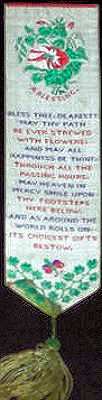 A BLESSING.
BLESS THEE, DEAREST!
MAY THY PATH
BE EVER STREWED
WITH FLOWERS:
AND MAY ALL
HAPPINESS BE THINE
THROUGH ALL THE
PASSING HOURS;
MAY HEAVEN IN
MERCY SMILE UPON
THY FOOTSTEPS
HERE BELOW:
AND AS AROUND THE
WORLD ROLLS ON
ITS CHOICEST GIFTS
BESTOW.